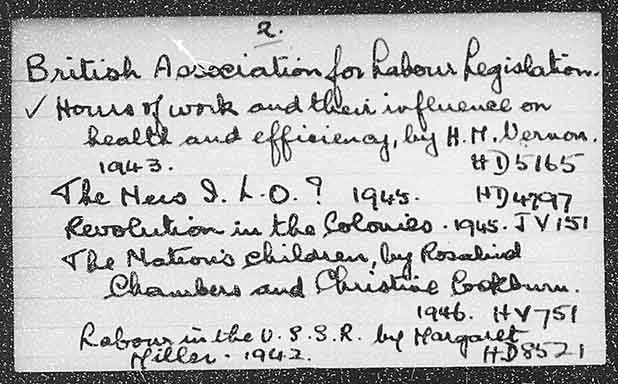 2.
British Association for Labour Legislation.
✓ Hours of work and their influence on
health and efficiency, by H. M. Vernon.
1943. HD5165
The New I. L. O. ? 1945. HD4797
Revolution in the Colonies. 1945. JV151
The Nation's children, by Rosalind
Chambers and Christine Cockburn.
1946. HV751
Labour in the U.S.S.R. by Margaret
Miller. 1942. HD8521